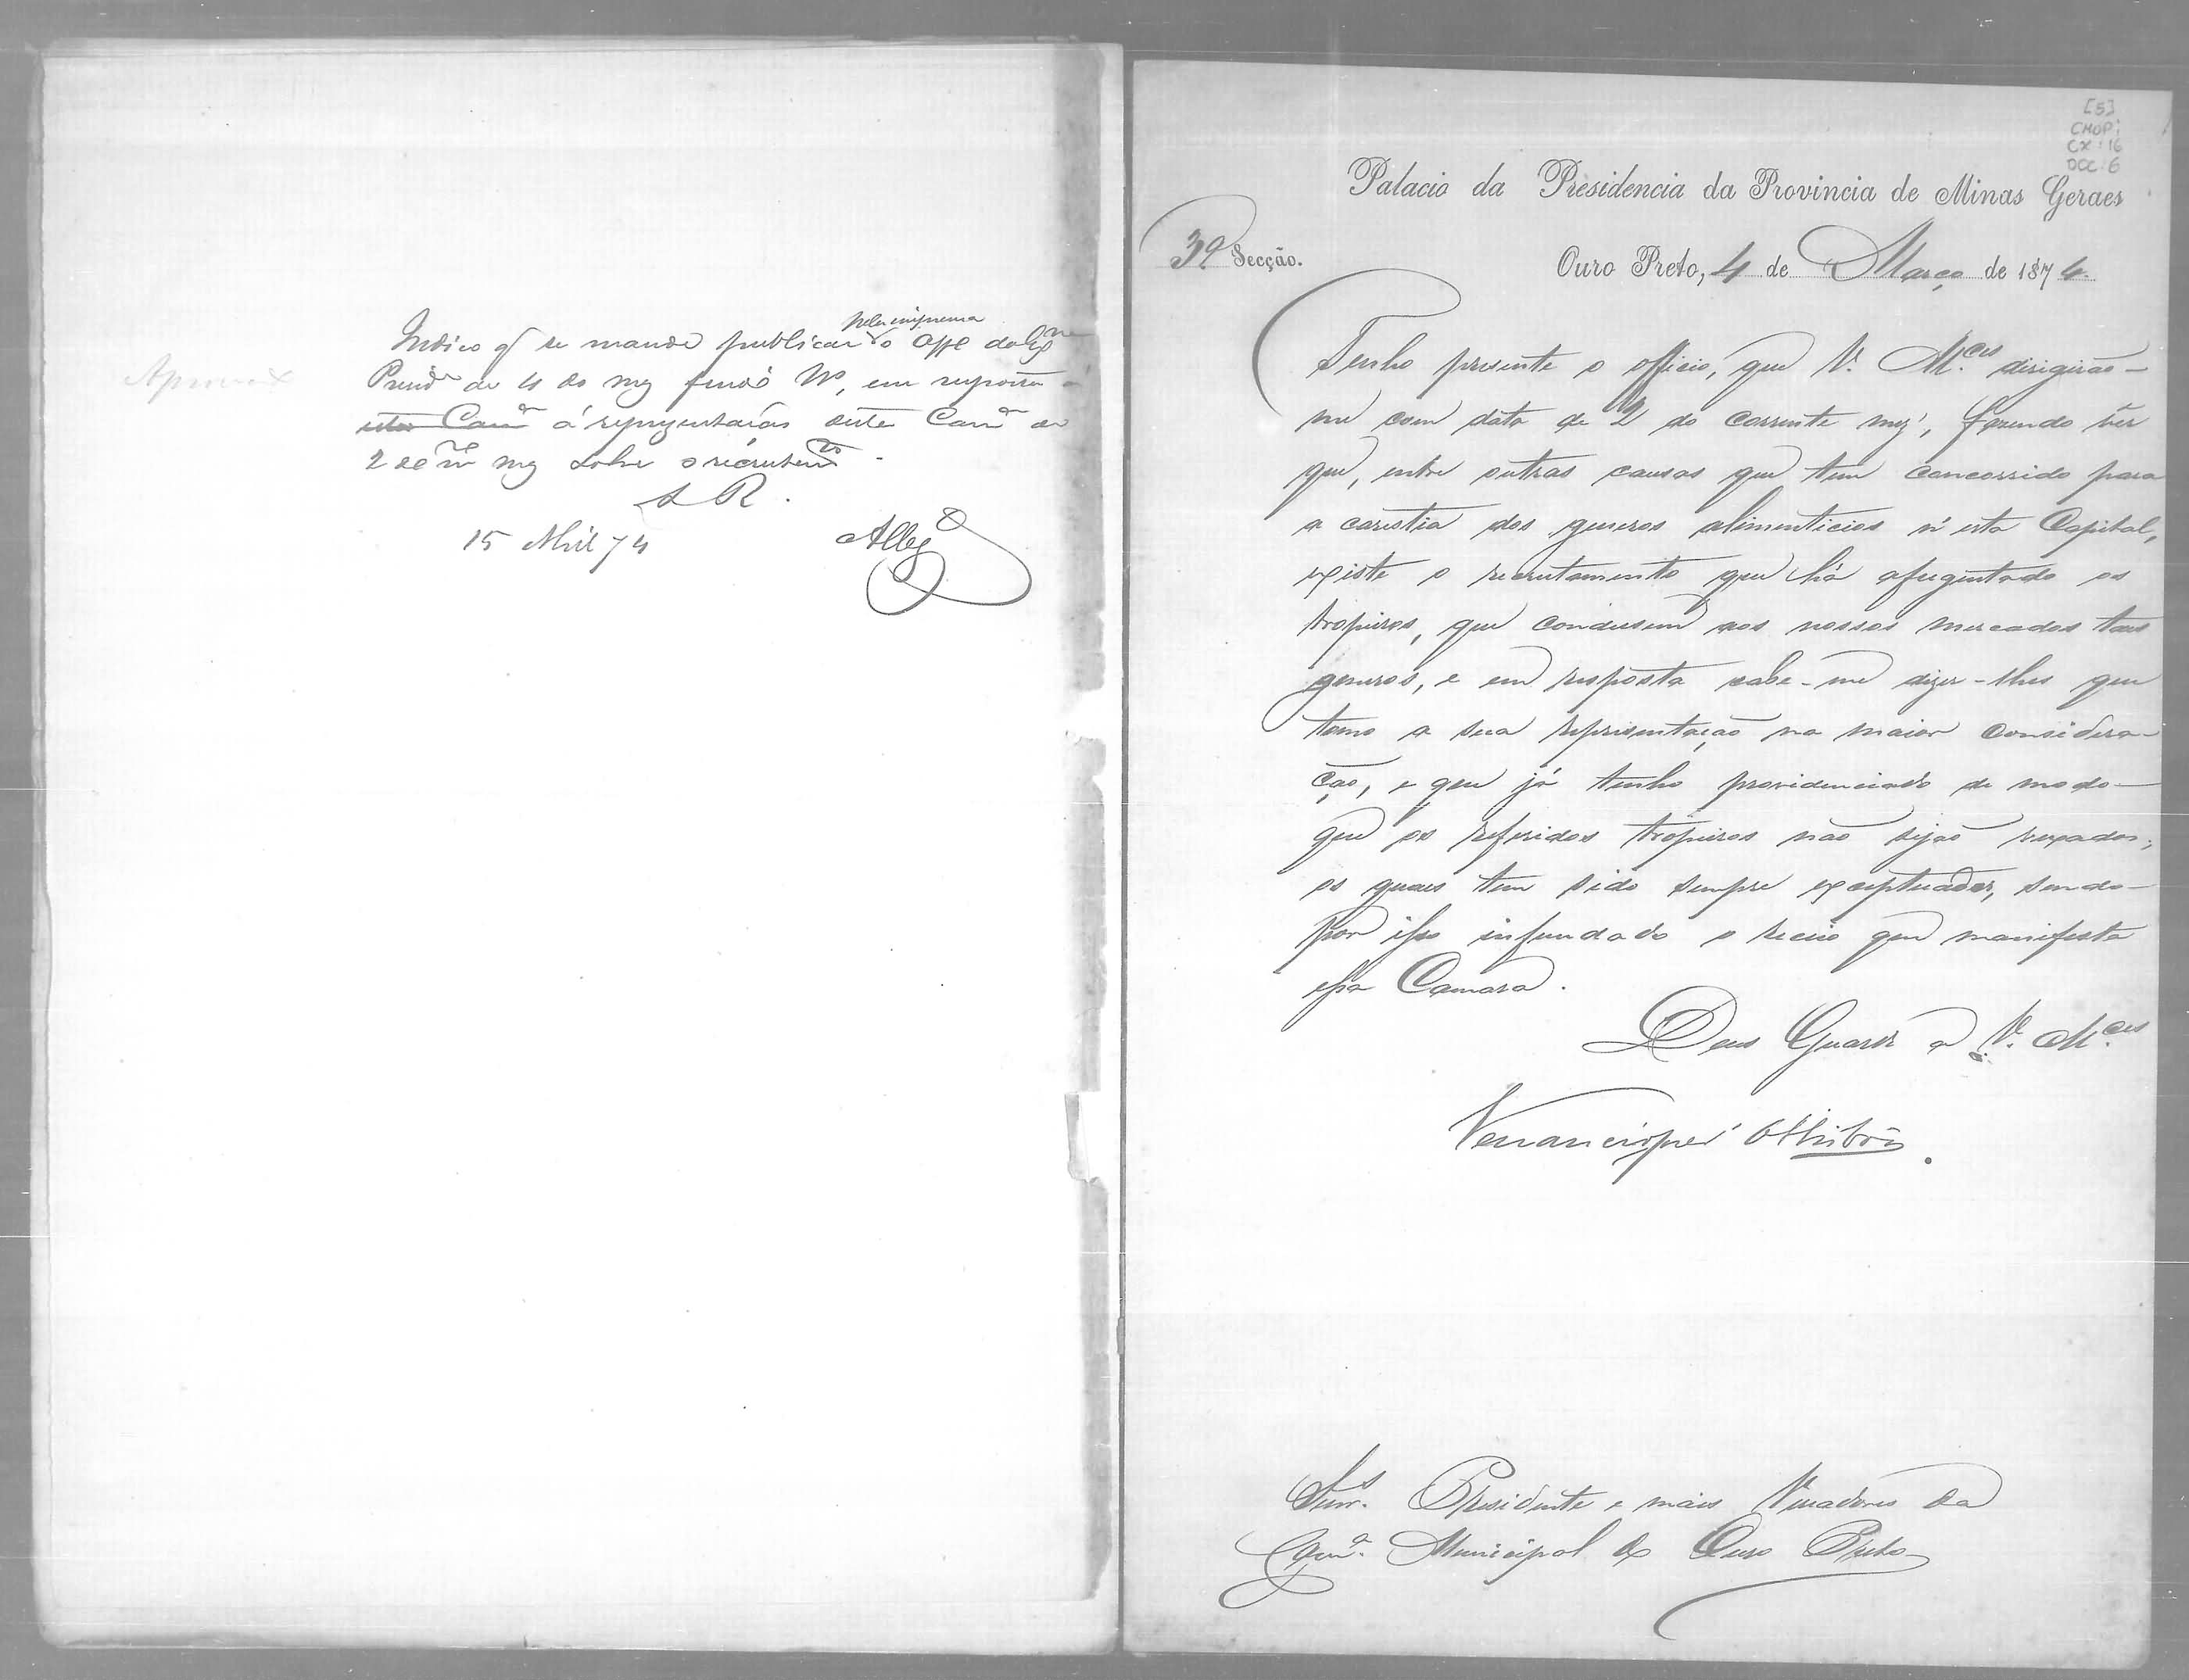 Aprovado
Indico q se mande publicar pela imprensa o off.e do Ex.mo
Presid.e de 4 do mez findo, em resposta
esta Cam.a á representação desta Cam.a de
2 do m.mo mez sobre o recrutam.to.
S R.
15 Abril 74
[5]
CMOP:
CX: 16
DOC: 6
Palacio da Presidencia da Provincia de Minas Geraes
3ª Secção.
Ouro Preto, 4 de Março de 1874.
Tenho presente o officio, que V. M.ces dirigirão-
me com data de 2 do corrente mez, fazendo vêr
que, entre outras causas que tem concorrido para
a carestia dos generos alimenticios n'esta Capital,
existe o recrutamento que há afugentado os
tropeiros, que condusem aos nossos mercados taes
generos, e em resposta cabe-me dizer-lhes que
tomo a sua representação na maior considera-
ção, e que já tenho providenciado de modo
que os referidos tropeiros não sejão vexados;
os quaes tem sido sempre exceptuados, sendo
por isso infundado o receio que manifesta
essa Camara.
Deus Guarde a V. M.ces
Venancio José d'Oliv.a Lisboa
Snr.s Presidente e mais Vereadores da
Cam.a Municipal de Ouro Preto